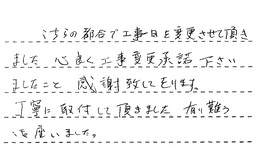 こちらの都合で工事日を変更させて頂き
ました 心良く工事変更承諾 下さい
ましたこと 感謝致しております
丁寧に取付して頂きました 有り難う
御座いました。